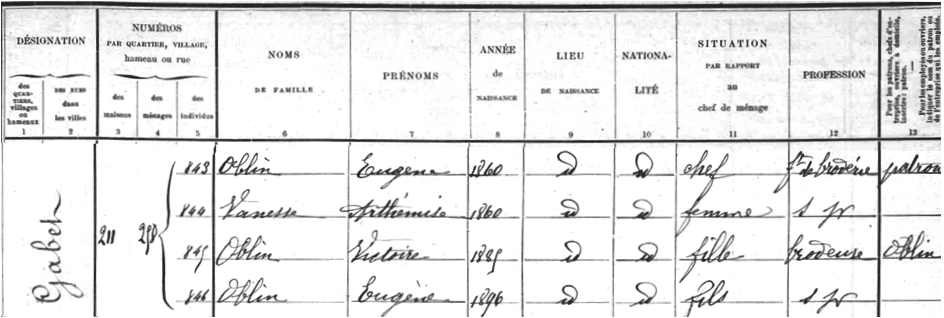 DÉSIGNATION NUMÉROS PAR QUARTIER, VILLAGE, hameau ou rue NOMS DE FAMILLE PRÉNOMS ANNÉE de NAISSANCE LIEU DE NAISSANCE NATIONA- LITÉ SITUATION PAR RAPPORT au chef de ménage PROFESSION Pour les patrons, chefs d'en- treprise, ouvriers à domicile, inscrire : patron. — Pour les employés ou ouvriers, indiquer le nom du patron ou de l'entreprise qui les emploie.
des QUAR- TIERS, villages ou hameaux DES RUES dans les villes des maisons des ménages des individus
1 2 3 4 5 6 7 8 9 10 11 12 13
Gabet 211 258 843 Oblin Eugène 1860 id id chef ft de broderie patron
844 Vanesse Arthémise 1860 id id femme s pr
845 Oblin Victoire 1885 id id fille brodeuse Oblin
846 Oblin Eugène 1896 id id fils s pr